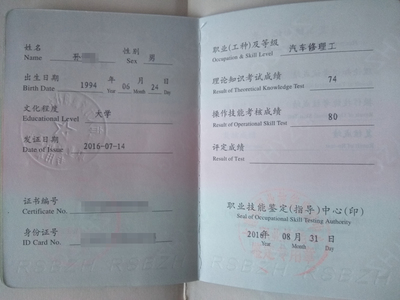 姓名 升 性别 男
Name Sex
出生日期 1994 年 06 月 24 日
Birth Date Year Month Day
文化程度 大学
Educational Level
发证日期 2016-07-14
Date of Issue
证书编号
Certificate No.
身份证号
ID Card No.
职业(工种)及等级 汽车修理工
Occupation & Skill Level
理论知识考试成绩 74
Result of Theoretical Knowledge Test
操作技能考核成绩 80
Result of Operational Skill Test
评定成绩
Result of Test
职业技能鉴定(指导)中心(印)
Seal of Occupational Skill Testing Authority
2016年 08 月 31 日
Year Month Day